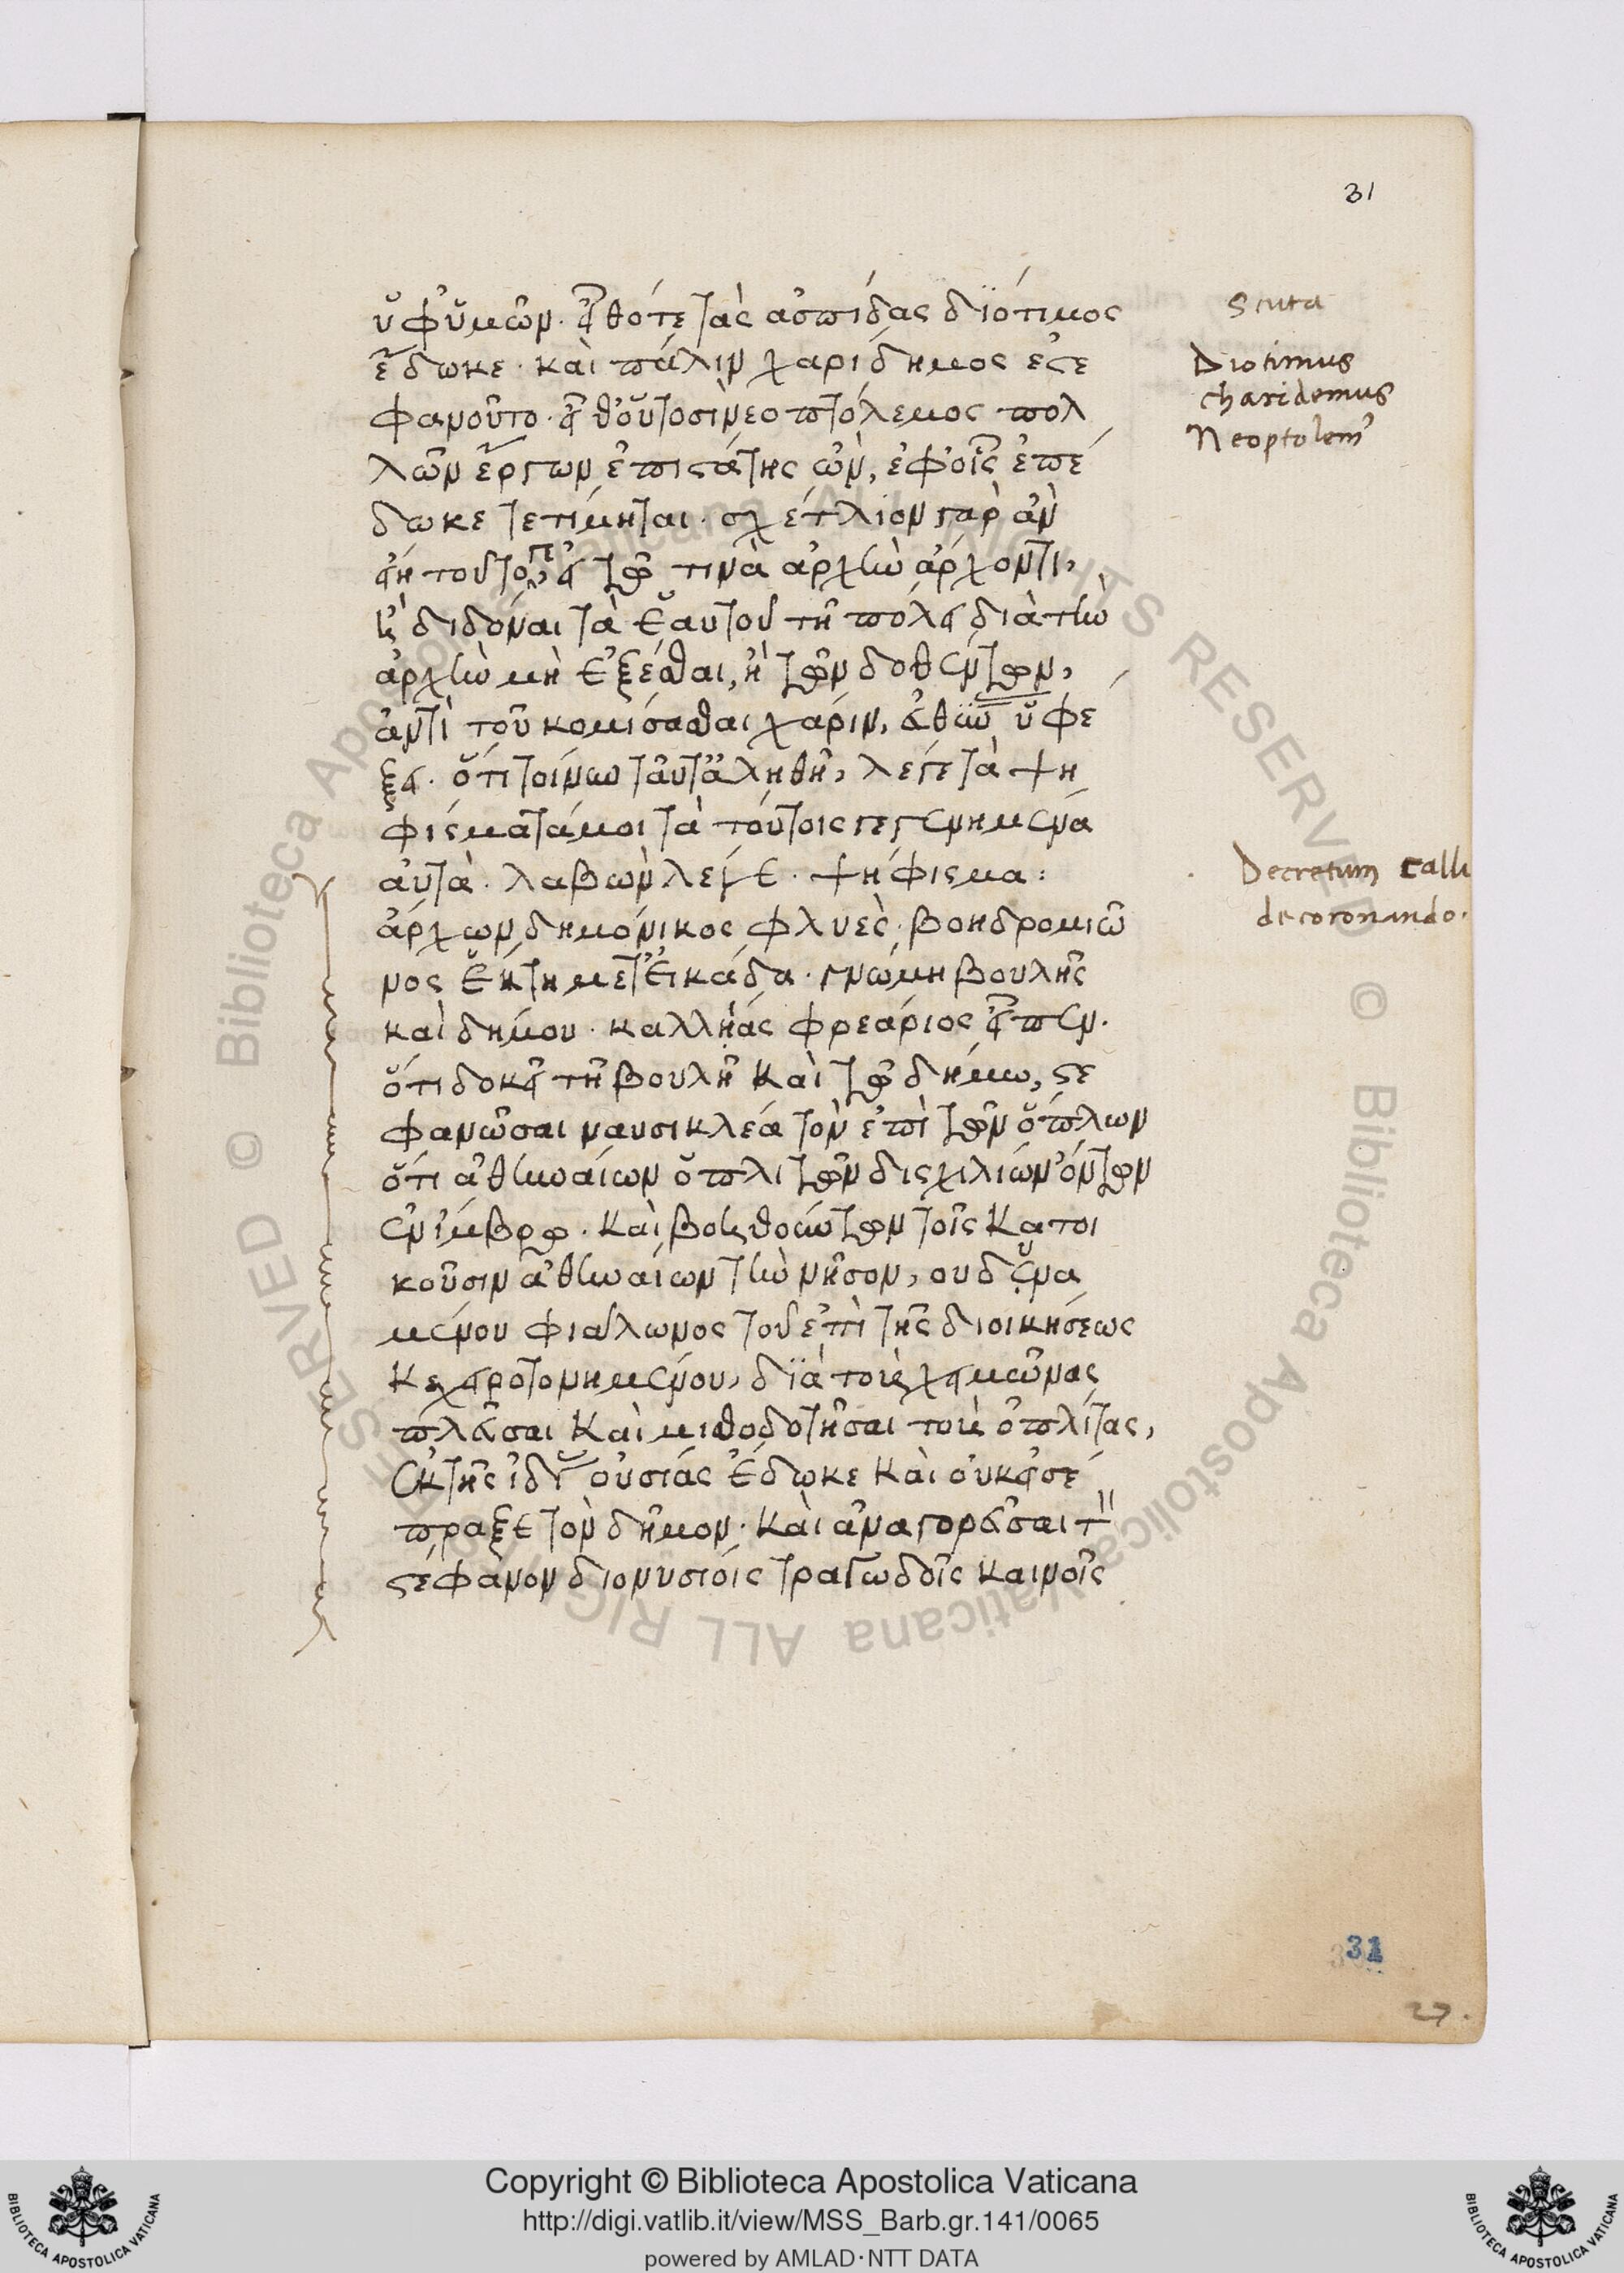 31
ὑφ' ὑμῶν. εἶθ' ὅτε τὰς ἀσπίδας διότιμος
ἔδωκε. καὶ πάλιν χαρίδημος ἐστε
φανοῦτο. εἶθ' οὑτοσὶ νεοπτόλεμος πολ
λῶν ἔργων ἐπιστάτης ὢν, ἐφ' οἷς ἐπέ
δωκε τετίμηται. σχέτλιον γὰρ ἂν
εἴη τοῦτό γε, εἰ τῷ τινὰ ἀρχὴν ἄρχοντι,
ἢ διδόναι τὰ ἑαυτοῦ τῇ πόλει διὰ τὴν
ἀρχὴν μὴ ἐξέσται, ἢ τῶν δοθέντων,
ἀντὶ τοῦ κομίσασθαι χάριν, εὐθύνας ὑφέ
ξει. ὅτι τοίνυν ταῦτ' ἀληθῆ, λέγε τὰ ψη
φίσματά μοι τὰ τούτοις γεγενημένα
αὐτὰ. λαβὼν λέγε. ψήφισμα:
ἄρχων δημόνικος φλυεὺς. βοηδρομιῶ
νος ἕκτη μετ' εἰκάδα. γνώμη βουλῆς
καὶ δήμου. καλλίας φρεάριος εἶπεν.
ὅτι δοκεῖ τῇ βουλῇ καὶ τῷ δήμω, στε
φανῶσαι ναυσικλέα τὸν ἐπὶ τῶν ὅπλων
ὅτι ἀθηναίων ὁπλιτῶν δισχιλίων ὄντων
ἐν ἴμβρω. καὶ βοηθούντων τοῖς κατοι
κοῦσιν ἀθηναίων τὴν νῆσον, οὐ δυνα
μένου φιάλωνος τοῦ ἐπὶ τῆς διοικήσεως
κεχειροτονημένου, διὰ τοὺς χειμῶνας
πλεῦσαι καὶ μισθοδοτῆσαι τοὺς ὁπλίτας,
ἐκ τῆς ἰδίας οὐσίας ἔδωκε καὶ οὐκ εἰσέ
πραξε τὸν δῆμον. καὶ ἀναγορεῦσαι τὸν
στέφανον διονυσίοις τραγωδοῖς καινοῖς
Scuta
Diotimus
charidemus
Neoptolem9
Decretum calli
de coronando.
31
27.
© Biblioteca Apostolica Vaticana ALL RIGHTS RESERVED
© Biblioteca Apostolica Vaticana ALL RIGHTS RESERVED
BIBLIOTECA APOSTOLICA VATICANA
Copyright © Biblioteca Apostolica Vaticana
http://digi.vatlib.it/view/MSS_Barb.gr.141/0065
powered by AMLAD·NTT DATA
BIBLIOTECA APOSTOLICA VATICANA